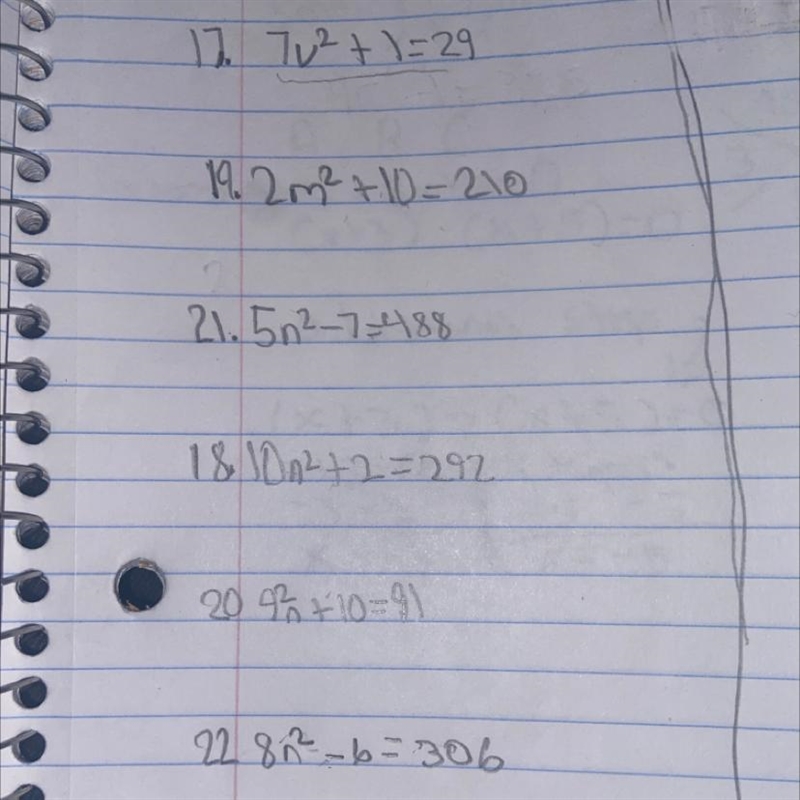 17. 7v² + 1 = 29
19. 2m² + 10 = 210
21. 5n² - 7 = 488
18. 10n² + 2 = 292
20 9²n + 10 = 91
22 8n² - 6 = 306